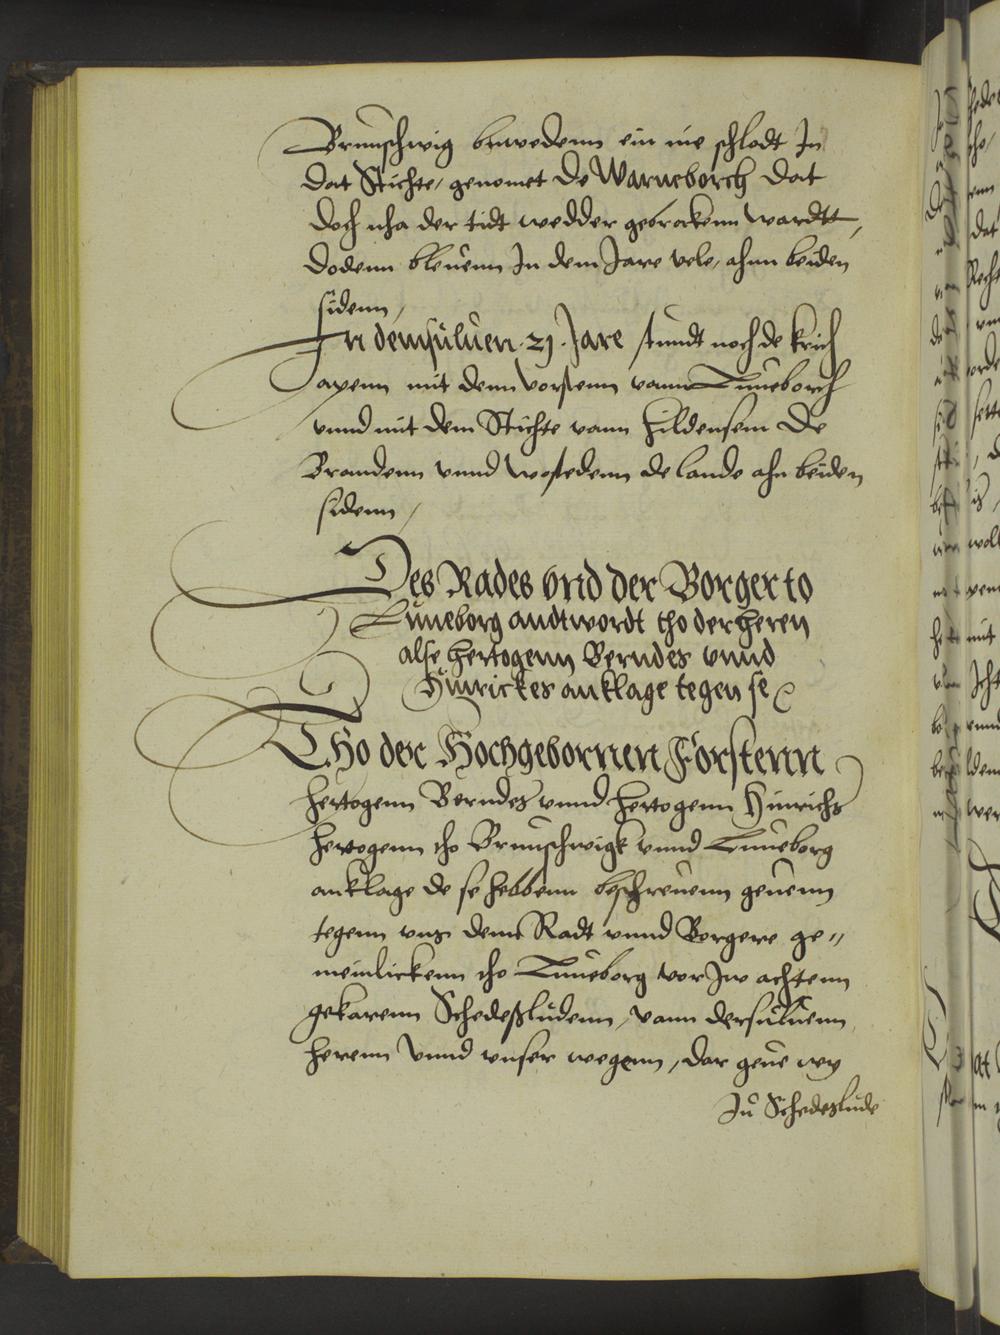 Brunschwig buwedenn ein nie schlodt In
dat Stichte, genomet de Warneborch dat
doch nha der tidt wedder gebrokenn wardtt,
dodenn bleuenn In dem Jare vele, ahnn beiden
sidenn,
In demsuluen .21. Jare stundt noch de krich
apenn mit denn vorstenn vann Luneborch
vnnd mit dem Stichte vann Hildensem De
Brandenn vnnd wostedenn de lande ahn beiden
sidenn,
Des Rades vnd der Borger to
Luneborg andtwordt tho der heren
alse hertogenn Berndes vnnd
Hinrickes anklage tegen se
Tho der Hochgebornnen Forstenn
hertogenn Berndes vnnd hertogenn Hinrichs
hertogenn tho Brunschwigk vnnd Luneborg
anklage de se hebbenn beschreuenn geuenn
tegenn vns denn Radt vnnd Borgere ge=
meinlickenn tho Luneborg vor Jw achtenn
gekarenn Schedeßludenn, vann dersuluenn
herenn vnnd vnser wegenn, dar geue wy
Ju Schedeslude